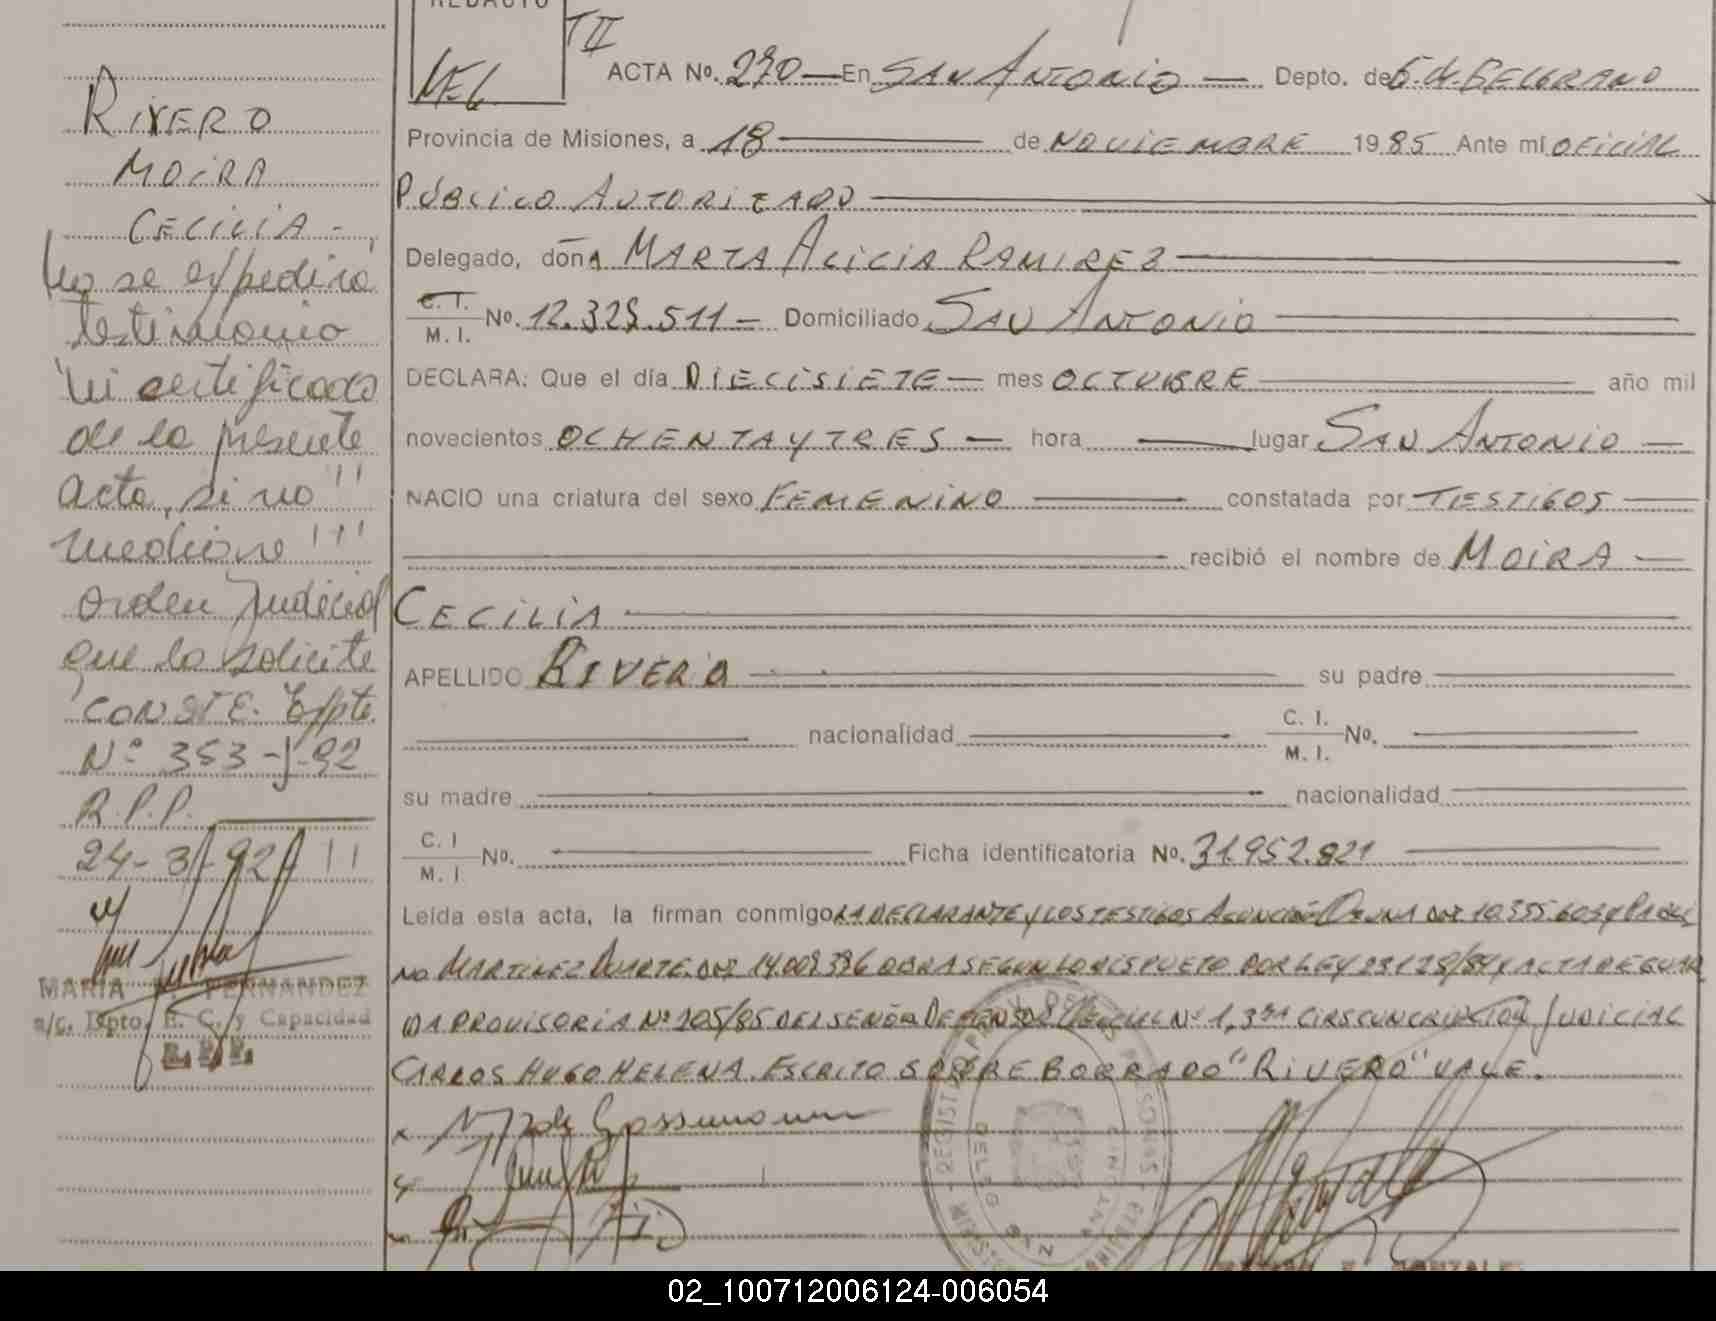 REDACTO
T II
RIVERO
MOIRA
CECILIA -
No se expedirá
testimonio
ni certificado
de la presente
acta, si no
mediare
orden Judicial
que lo solicite
CONSTE. Expte.
Nº 353-J-92
R.P.P.
24-3-92
MARIA FERNANDEZ
a/c. Dpto. E. C. y Capacidad
R. P. P.
ACTA No. 270 — En SAN ANTONIO — Depto. de G. M. BELGRANO
Provincia de Misiones, a 18 — de NOVIEMBRE 1985 Ante mi OFICIAL
PÚBLICO AUTORIZADO —
Delegado, doña MARTA ALICIA RAMIREZ —
C. I.
M. I. No. 12.325.511 — Domiciliado SAN ANTONIO —
DECLARA: Que el día DIECISIETE — mes OCTUBRE — año mil
novecientos OCHENTA y TRES — hora — lugar SAN ANTONIO —
NACIO una criatura del sexo FEMENINO — constatada por TESTIGOS —
— recibió el nombre de MOIRA —
CECILIA —
APELLIDO RIVERO — su padre —
— nacionalidad — C. I.
M. I. No. —
su madre — nacionalidad —
C. I
M. I No. — Ficha identificatoria No. 31.952.821 —
Leída esta acta, la firman conmigo LA DECLARANTE y LOS TESTIGOS ASUNCIÓN 10.355.603 y
NO MARTINEZ DUARTE 14.009.396 OBRA SEGUN LO DISPUETO POR LEY 23128/84 y ACTA DE GUAR
DA PROVISORIA Nº 205/85 DEL SEÑOR DEFENSOR OFICIAL Nº 1, 3ra CIRSCUNCRIPCION JUDICIAL
CARLOS HUGO HELENA. ESCRITO SOBRE BORRADO "RIVERO" VALE.
02_100712006124-006054